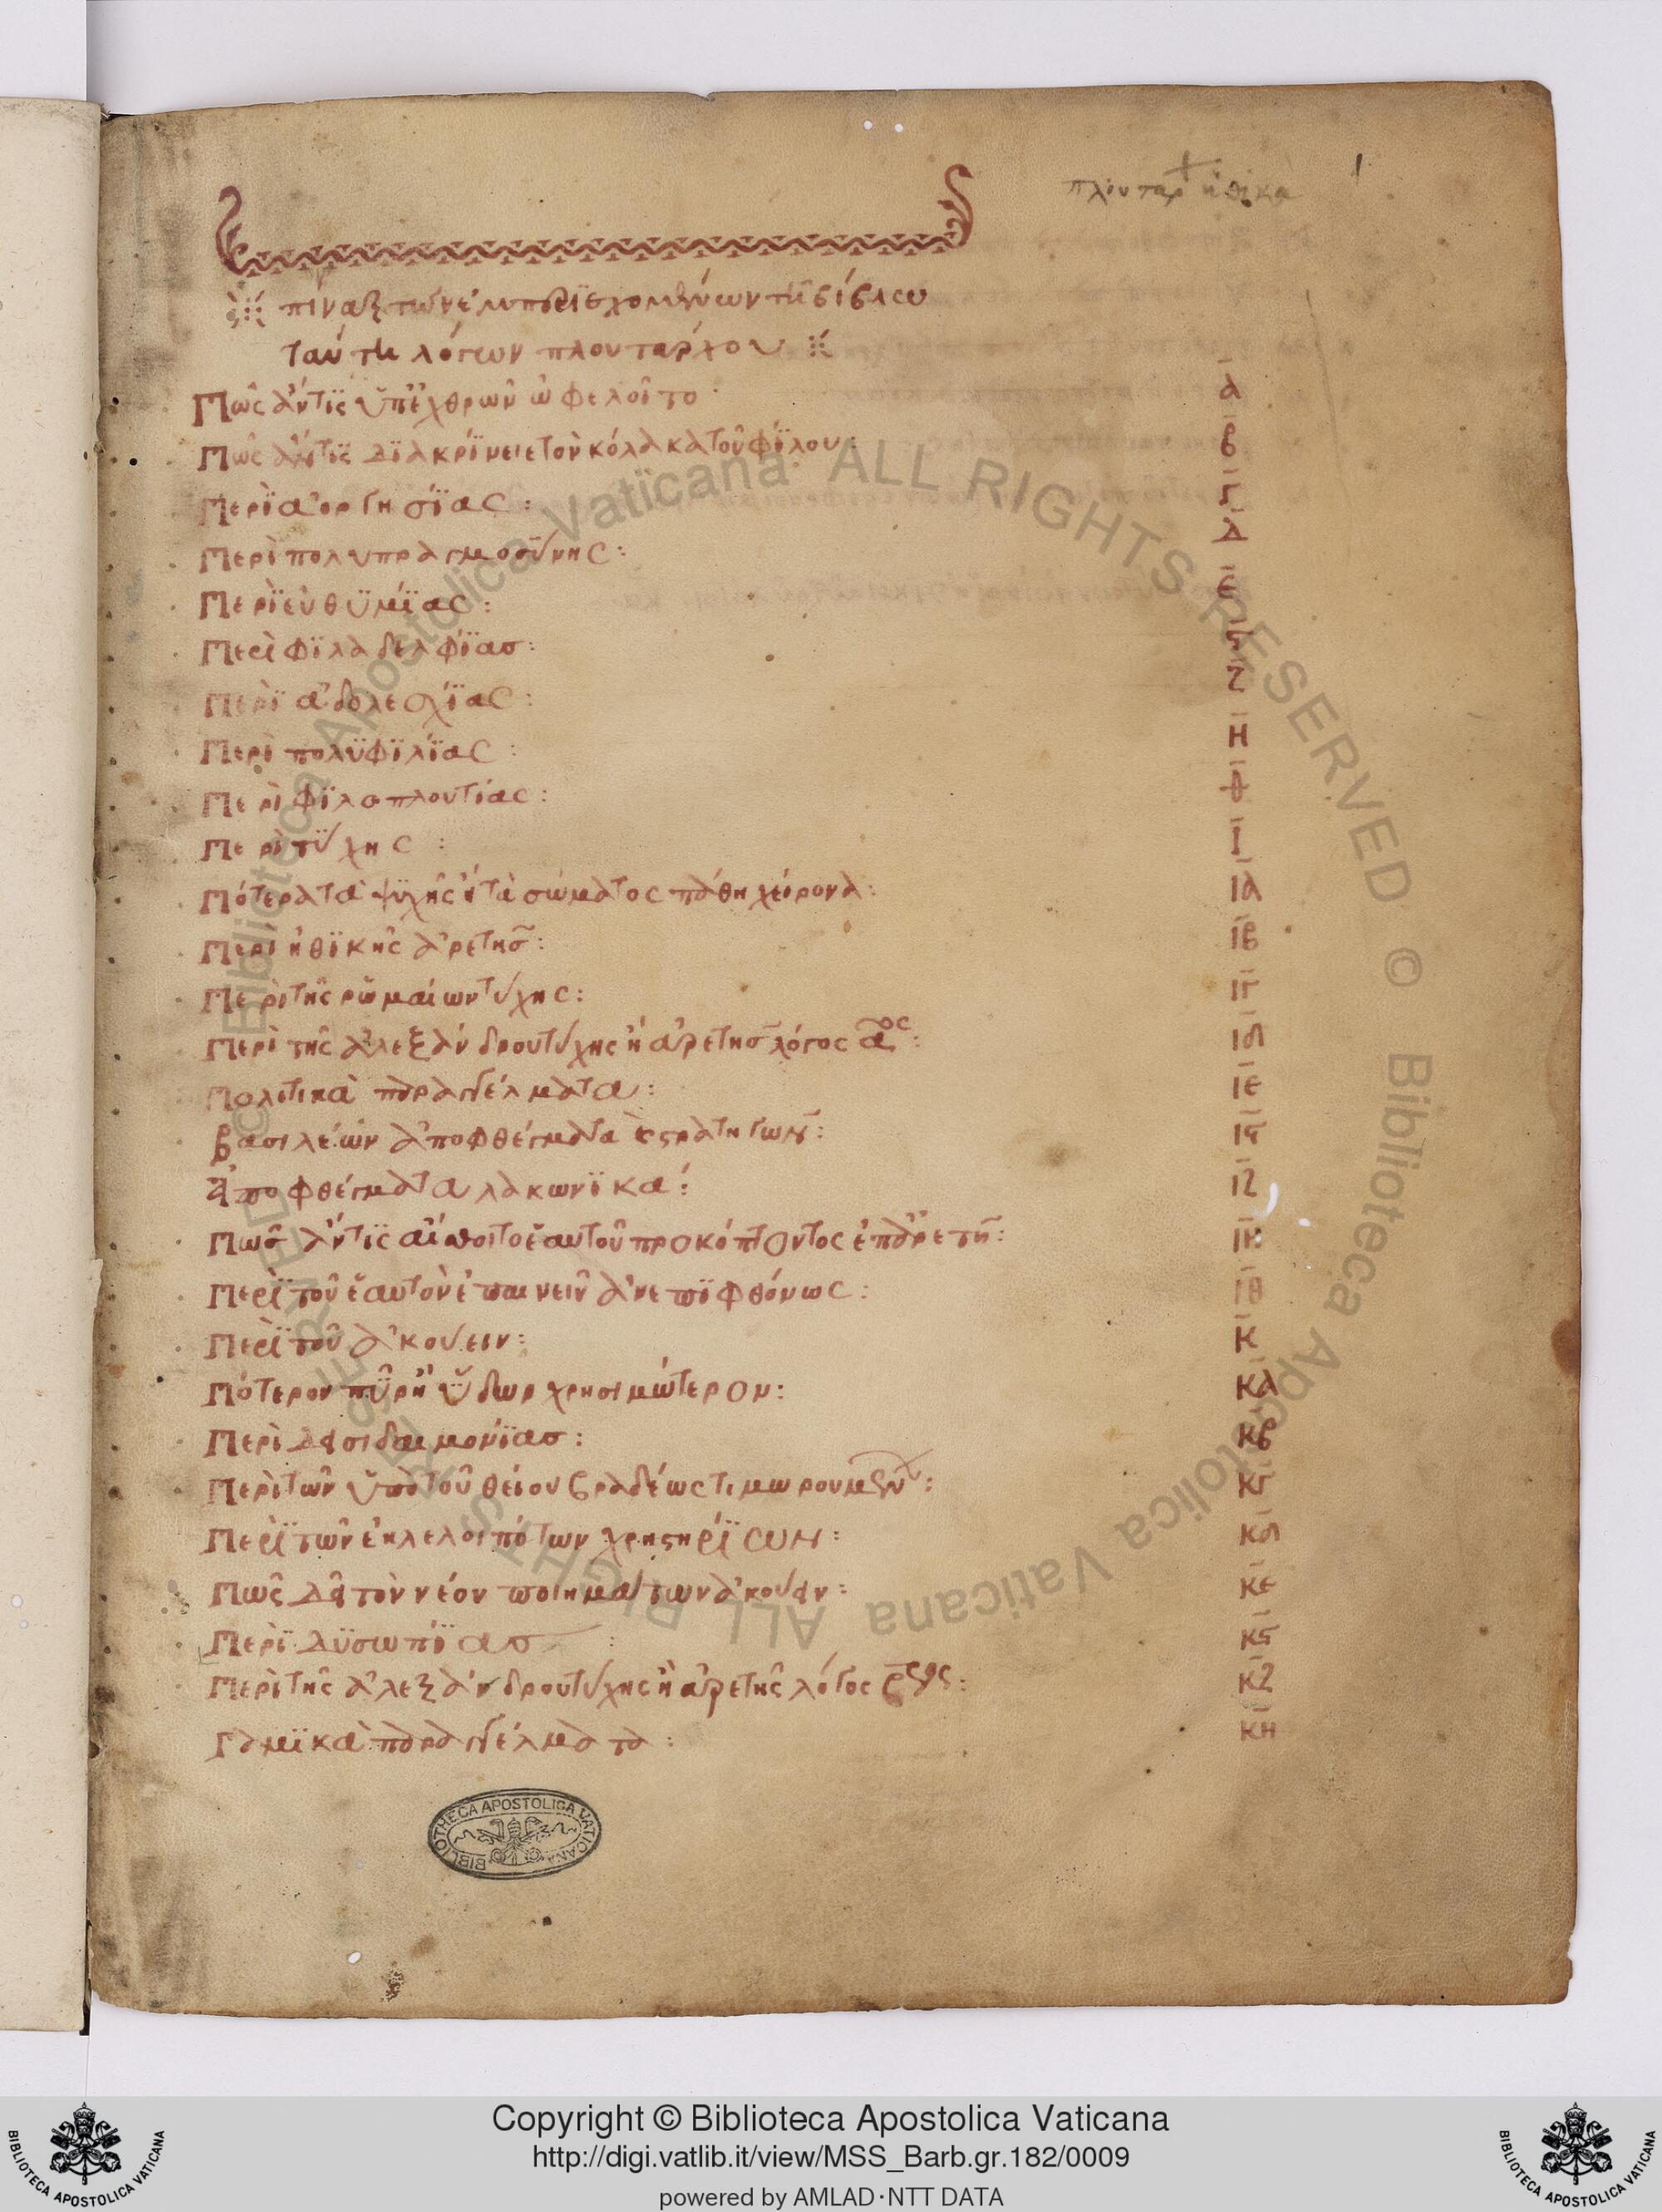 πλουταρχ ἠθικὰ 1
πιναξ τῶν ἐμπεριεχομένων τῆ βίβλω
ταύτη λόγων πλουτάρχου
Πῶς ἄν τις ὑπ' ἐχθρῶν ὠφελοῖτο Α
Πῶς ἄν τις διακρίνειε τὸν κόλακα τοῦ φίλου: Β
Περὶ ἀοργησίας: Γ
Περὶ πολυπραγμοσύνης: Δ
Περὶ εὐθυμίας: Ε
Περὶ φιλαδελφίας: ϛ
Περὶ ἀδολεσχίας: Ζ
Περὶ πολυφιλίας: Η
Περὶ φιλοπλουτίας: Θ
Περὶ τύχης: Ι
Πότερα τὰ ψυχῆς ἢ τὰ σώματος πάθη χείρονα: ΙΑ
Περὶ ἠθικῆς ἀρετῆς: ΙΒ
Περὶ τῆς ρωμαίων τύχης: ΙΓ
Περὶ τῆς ἀλεξάνδρου τύχης ἢ ἀρετῆς λόγος αος: ΙΔ
Πολιτικὰ παραγγέλματα: ΙΕ
Βασιλέων ἀποφθέγματα ϗ στρατηγῶν: Ιϛ
Ἀποφθέγματα λακωνικά: ΙΖ
Πῶς ἄν τις αἴσθοιτο ἑαυτοῦ προκόπτοντος ἐπ' ἀρετῆ: ΙΗ
Περὶ τοῦ ἑαυτὸν ἐπαινεῖν ἀνεπιφθόνως: ΙΘ
Περὶ τοῦ ἀκούειν: Κ
Πότερον πῦρ ἢ ὕδωρ χρησιμώτερον: ΚΑ
Περὶ δεισιδαιμονίας: ΚΒ
Περὶ τῶν ὑπὸ τοῦ θείου βραδέως τιμωρουμένων: ΚΓ
Περὶ τῶν ἐκλελοιπότων χρηστηρίων: ΚΔ
Πῶς δεῖ τὸν νέον ποιημάτων ἀκούειν: ΚΕ
Περὶ δυσωπίας: Κϛ
Περὶ τῆς ἀλεξάνδρου τύχης ἢ ἀρετῆς λόγος ΚΖ
Γαμικὰ παραγγέλματα: ΚΗ
BIBLIOTHECA APOSTOLICA VATICANA
© Biblioteca Apostolica Vaticana ALL RIGHTS RESERVED © Biblioteca Apostolica Vaticana ALL RIGHTS RESERVED
BIBLIOTECA APOSTOLICA VATICANA
Copyright © Biblioteca Apostolica Vaticana
http://digi.vatlib.it/view/MSS_Barb.gr.182/0009
powered by AMLAD·NTT DATA
BIBLIOTECA APOSTOLICA VATICANA